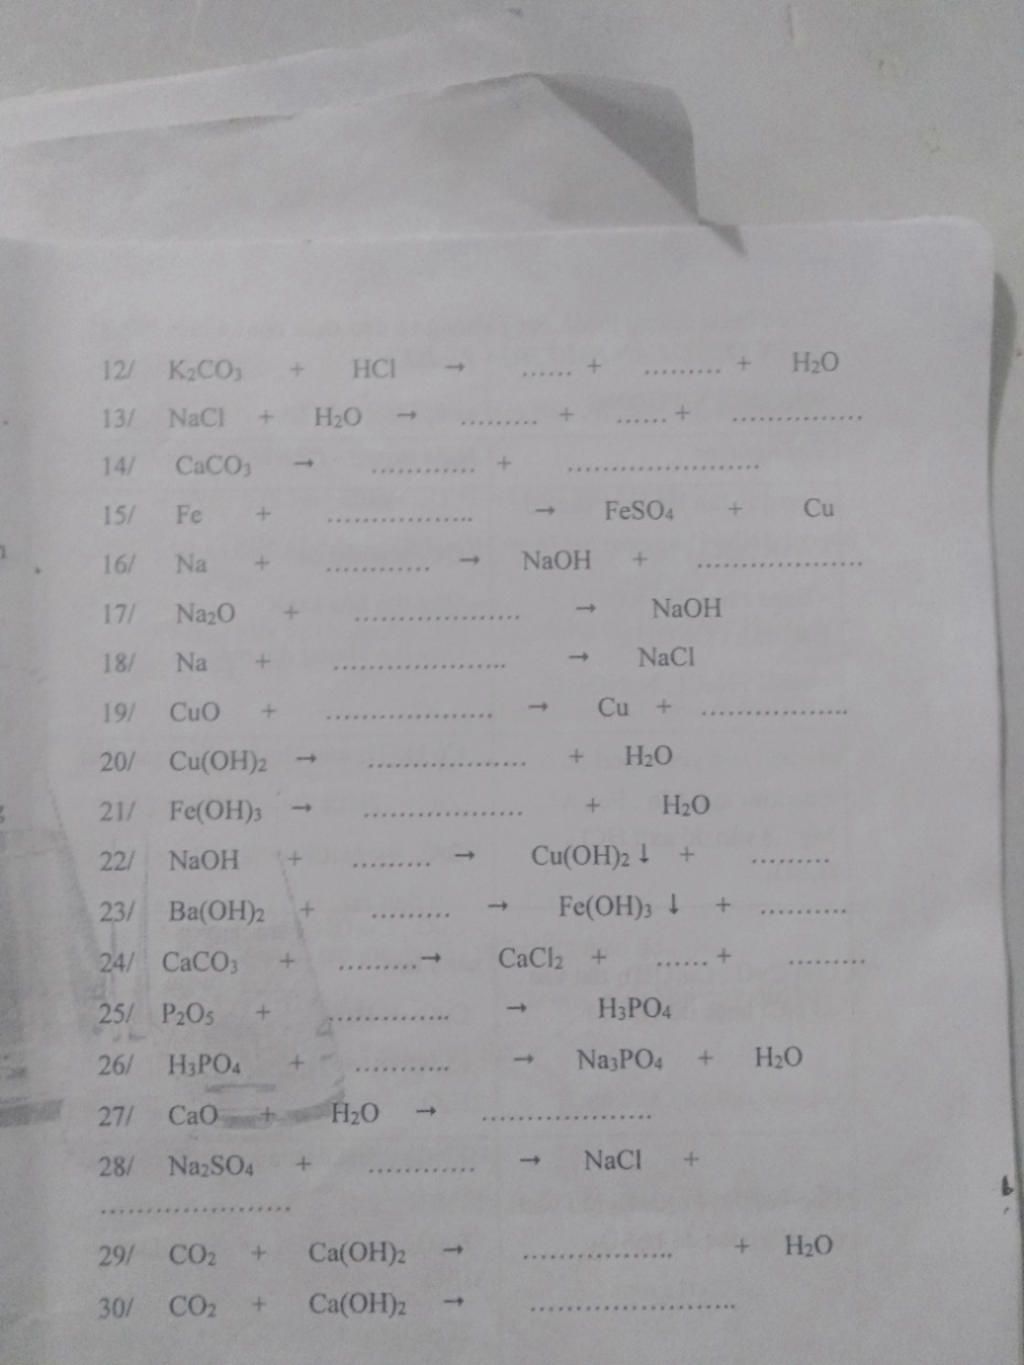 12/ K₂CO₃ + HCl → ...... + ......... + H₂O
13/ NaCl + H₂O → ......... + ...... + ...............
14/ CaCO₃ → ............ + ......................
15/ Fe + ................. → FeSO₄ + Cu
16/ Na + ............ → NaOH + ...................
17/ Na₂O + ................... → NaOH
18/ Na + .................... → NaCl
19/ CuO + ................... → Cu + .................
20/ Cu(OH)₂ → .................. + H₂O
21/ Fe(OH)₃ → .................. + H₂O
22/ NaOH + ......... → Cu(OH)₂ ↓ + .........
23/ Ba(OH)₂ + ......... → Fe(OH)₃ ↓ + ..........
24/ CaCO₃ + ......... → CaCl₂ + ...... + .........
25/ P₂O₅ + .............. → H₃PO₄
26/ H₃PO₄ + ........... → Na₃PO₄ + H₂O
27/ CaO + H₂O → ...................
28/ Na₂SO₄ + ............ → NaCl +
......................
29/ CO₂ + Ca(OH)₂ → ................. + H₂O
30/ CO₂ + Ca(OH)₂ → .......................